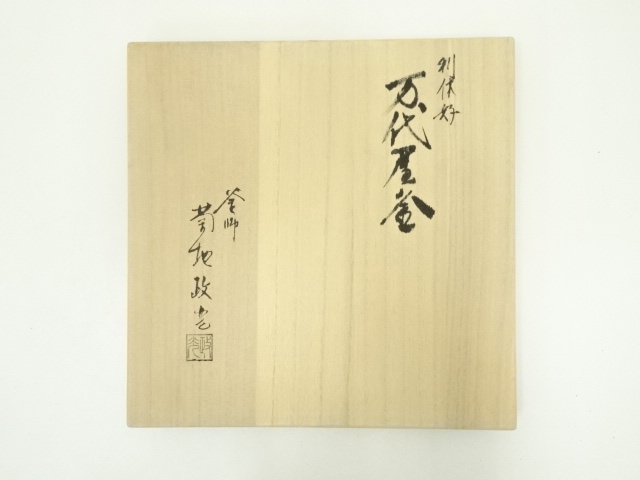 利休好
万代屋釜
釜師
菊地政光
政光